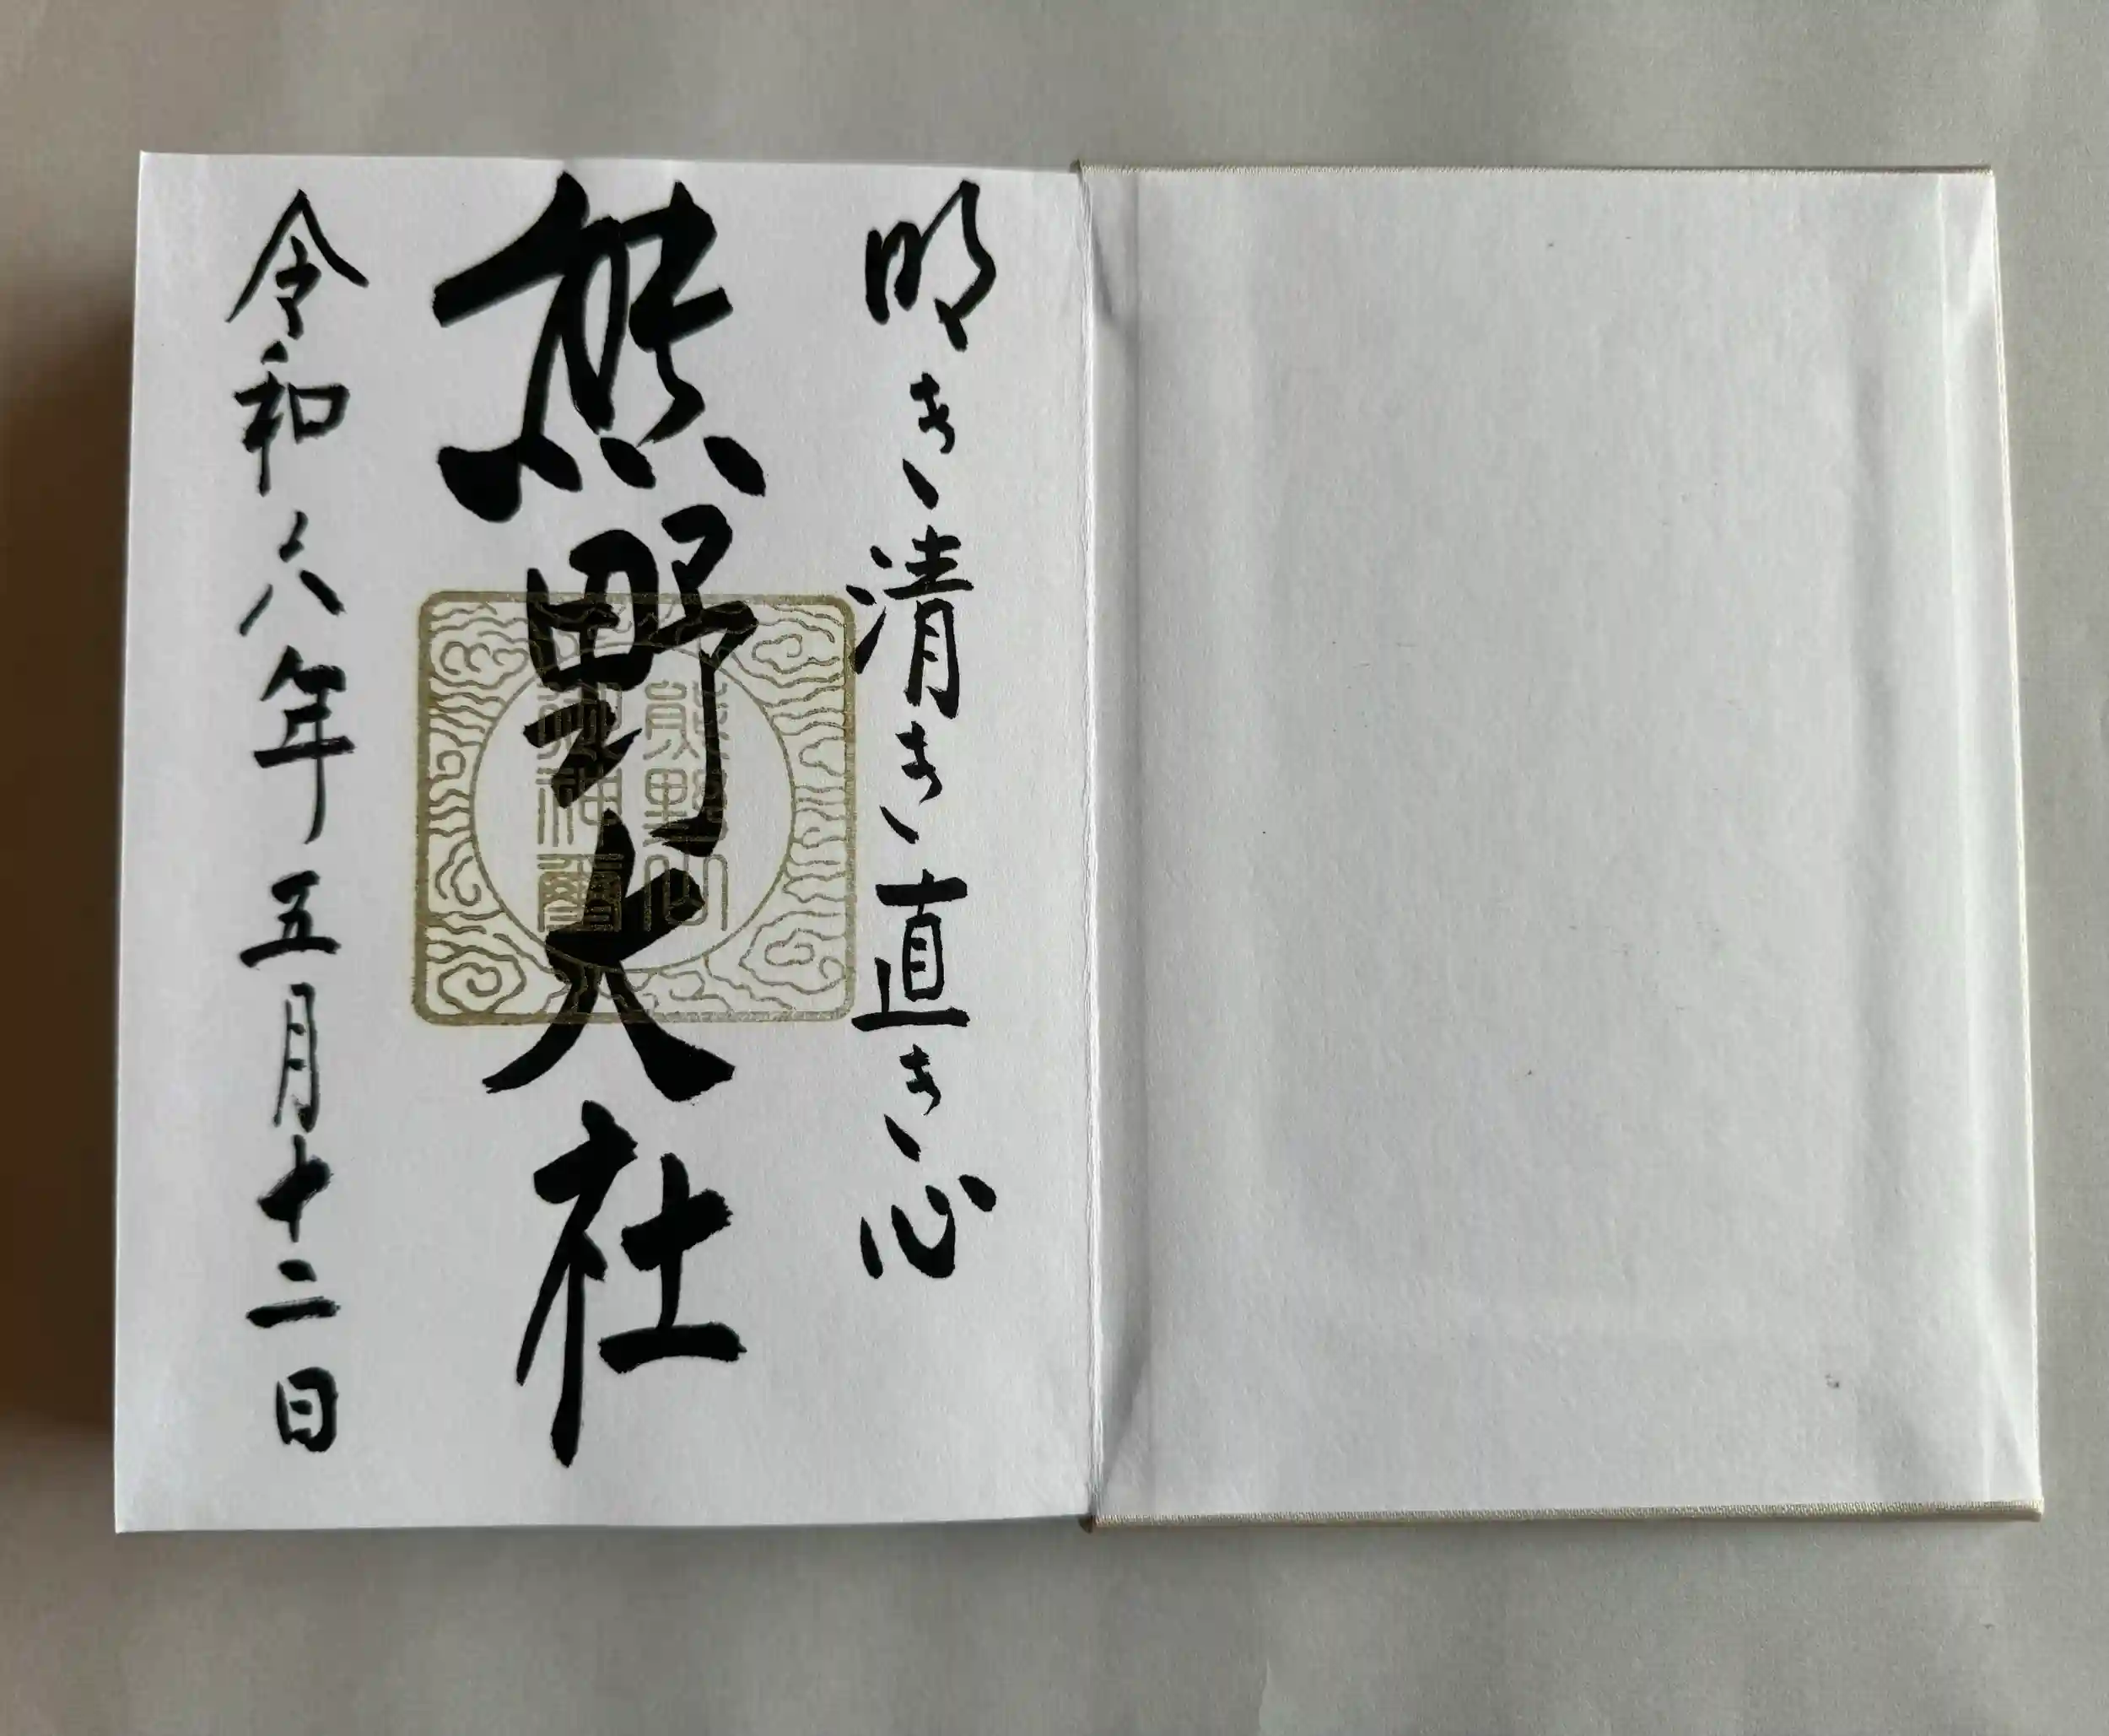 明き清き直き心
熊野大社
熊野山
御神璽
令和六年五月十二日